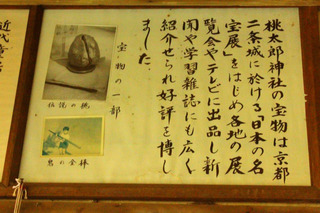 桃太郎神社の宝物は京都
二条城に於ける「日本の名
宝展」をはじめ各地の展
覧会やテレビに出品し新
聞や学習雑誌にも広く
紹介せられ好評を博し
ました.
宝物の一部
伝説の桃
鬼の金棒